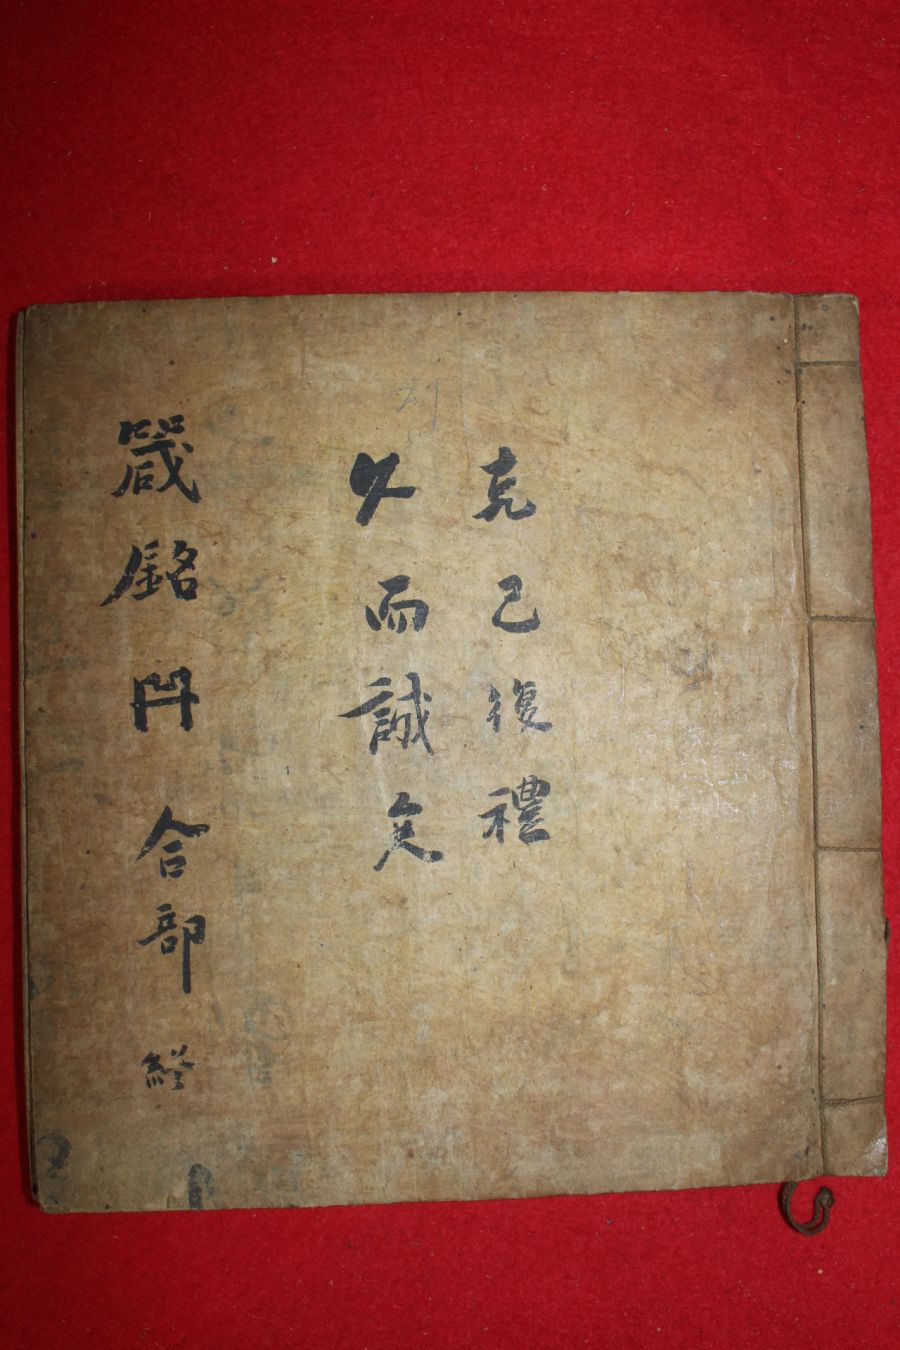 克己復禮
久而誠矣
箴銘冊合部